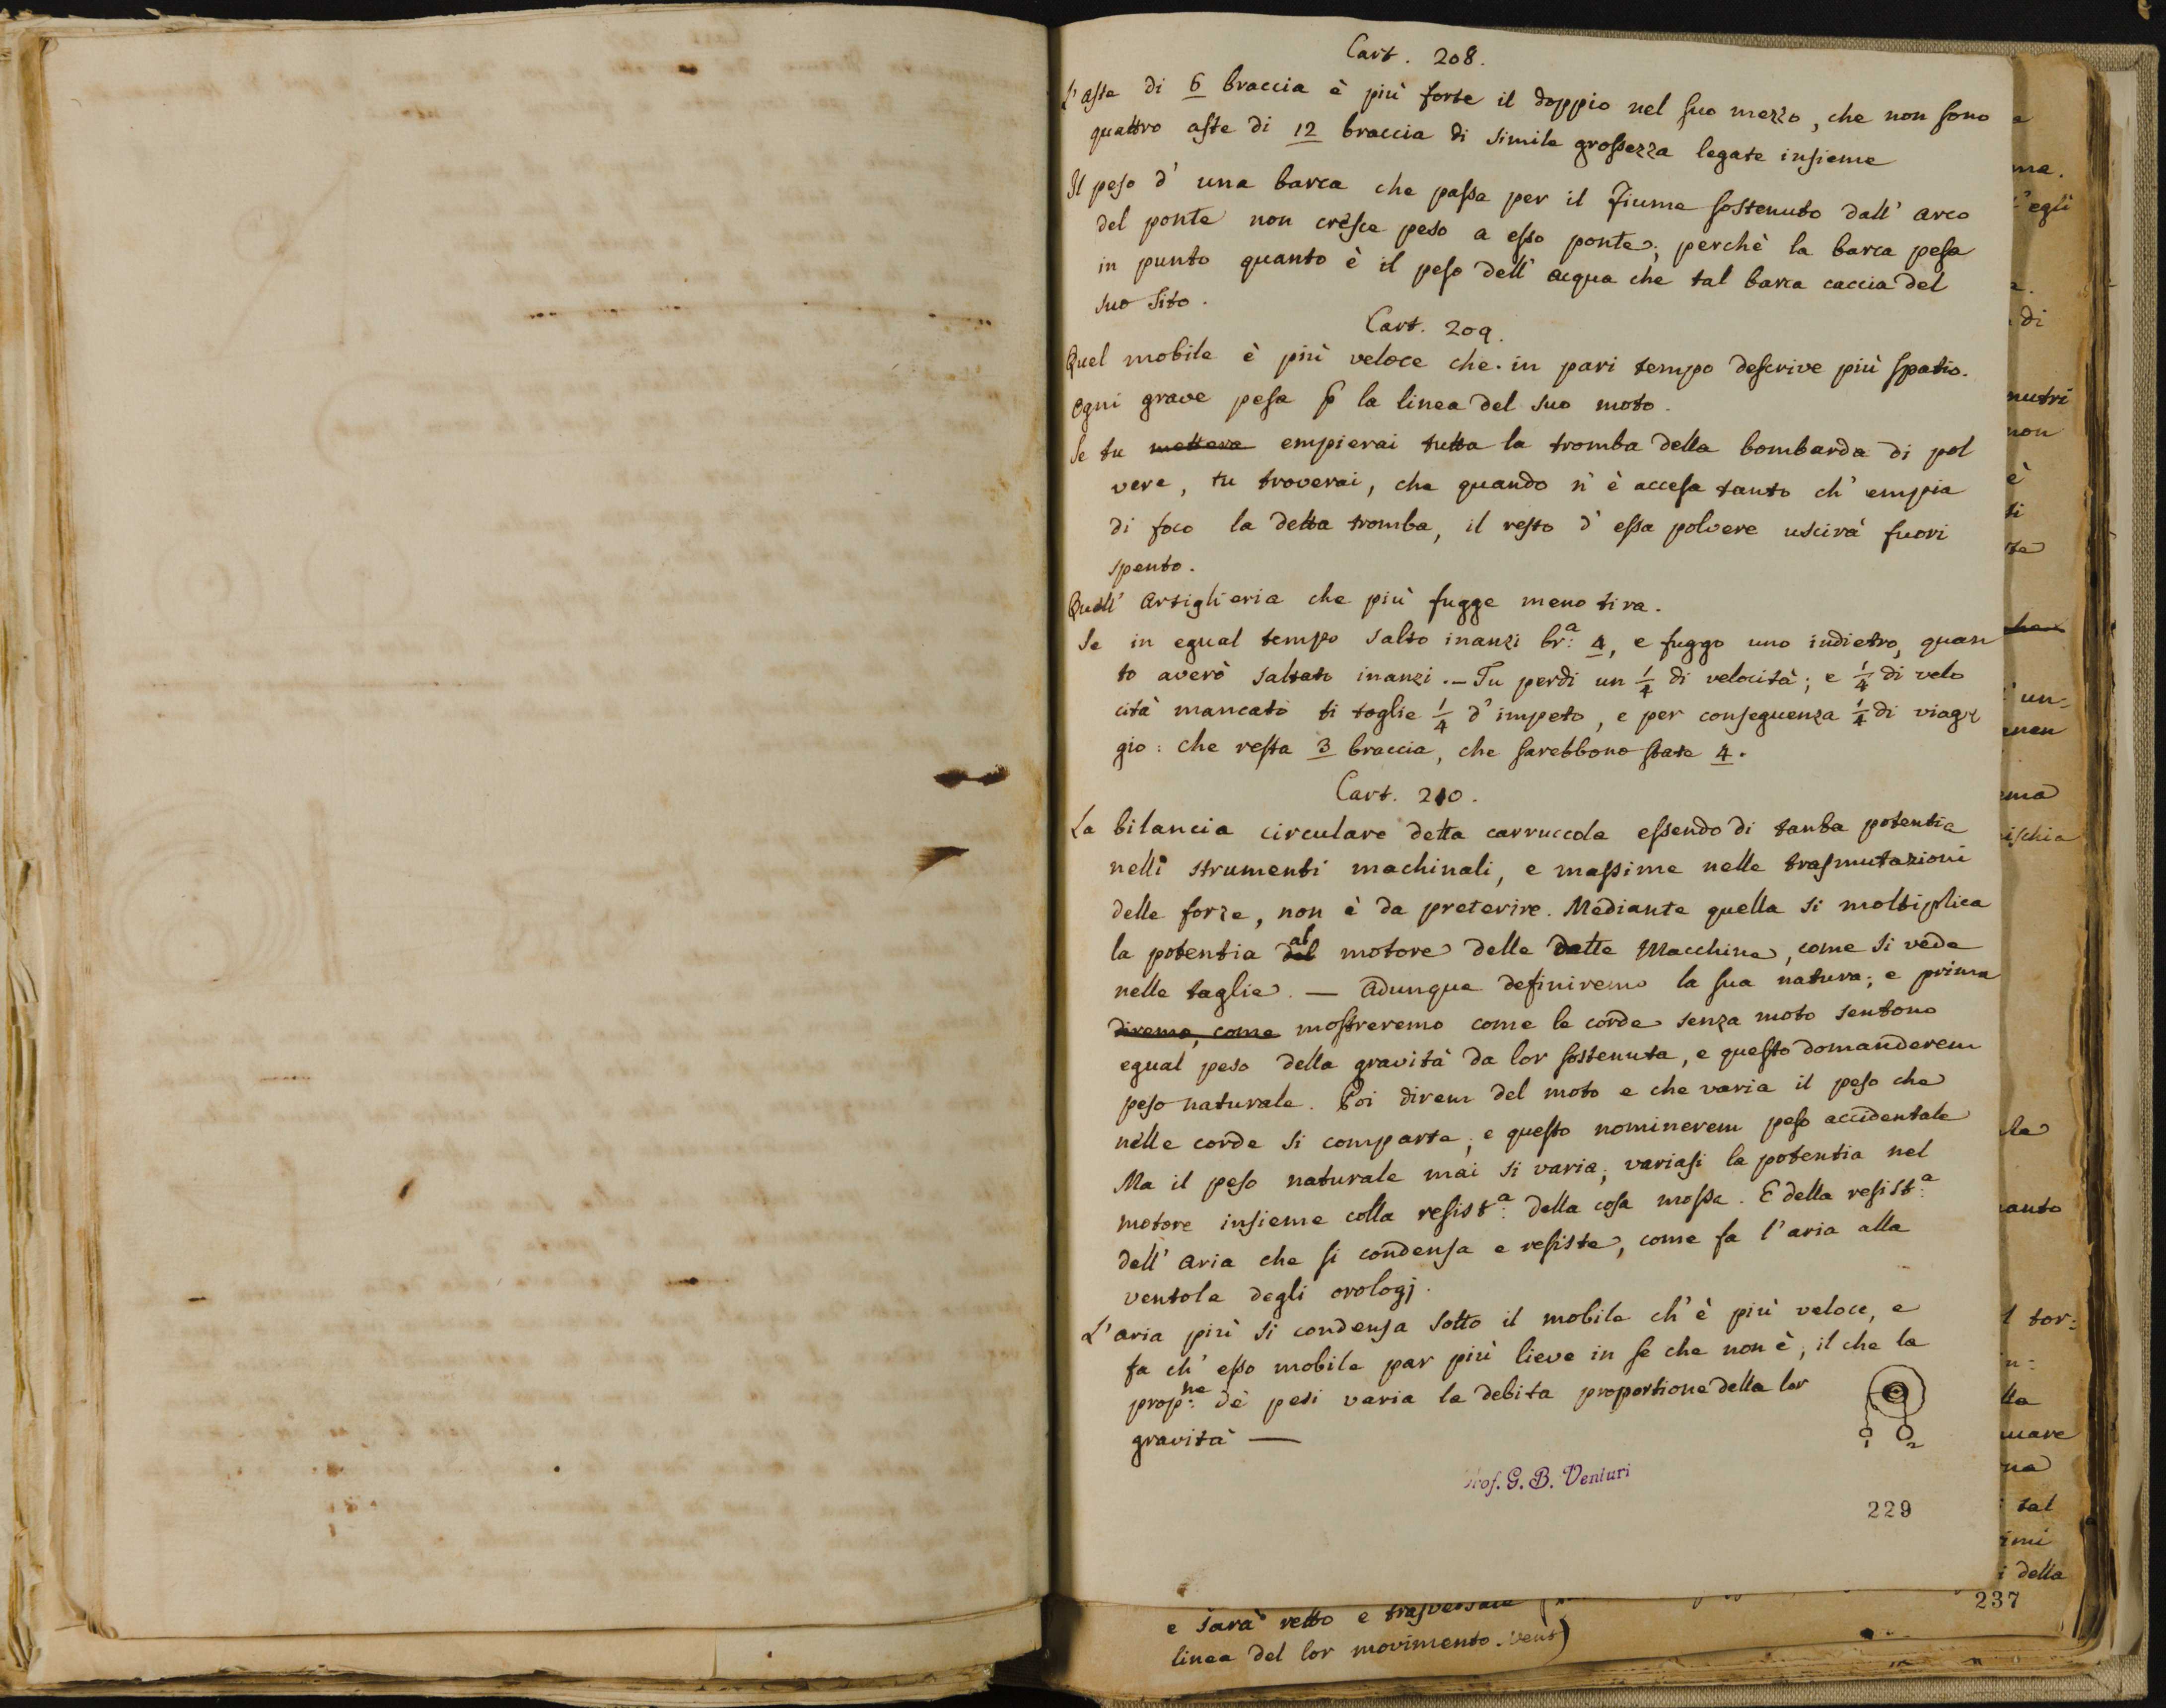 Cart. 208.
L'aste di 6 braccia è più forte il doppio nel suo mezzo, che non sono
quattro aste di 12 braccia di simile grossezza legate insieme
Il peso d'una barca che passa per il fiume sostenuto dall'arco
del ponte non cresce peso a esso ponte; perchè la barca pesa
in punto quanto è il peso dell'acqua che tal barca caccia del
suo sito.
Cart. 209.
Quel mobile è più veloce che in pari tempo descrive più spatio.
Ogni grave pesa p la linea del suo moto.
Se tu empierai tutta la tromba della bombarda di pol
vere, tu troverai, che quando n'è accesa tanto ch'empia
di foco la detta tromba, il resto d'essa polvere uscirà fuori
spento.
Quell'Artiglieria che più fugge meno tira.
Se in egual tempo salto inanzi br:a 4, e fuggo uno indietro, quan
to averò saltato inanzi. — Tu perdi un 1/4 di velocità; e 1/4 di velo
cità mancato ti toglie 1/4 d'impeto, e per conseguenza 1/4 di viag
gio: che resta 3 braccia, che sarebbono state 4.
Cart. 210.
La bilancia circulare detta carruccola essendo di tanta potentia
nelli strumenti machinali, e massime nelle trasmutazioni
delle forze, non è da preterire. Mediante quella si moltiplica
la potentia al motore delle dette Macchine, come si vede
nelle taglie. — Adunque definiremo la sua natura; e prima
diremo, come mostreremo come le corde senza moto sentono
egual peso della gravità da lor sostenuta, e questo domanderem
peso naturale. Poi direm del moto e che varia il peso che
nelle corde si comparte; e questo nominerem peso accidentale
Ma il peso naturale mai si varia; variasi la potentia nel
motore insieme colla resist:a della cosa mossa. E della resist:a
dell'aria che si condensa e resiste, come fa l'aria alla
ventola degli orologj.
L'aria più si condensa sotto il mobile ch'è più veloce, e
fa ch'esso mobile par più lieve in se che non è, il che la
prop:ne de' pesi varia la debita proportione della lor
gravità —
1 2
Prof. G. B. Venturi
229
e sarà retto e trasversale
linea del lor movimento. Vent)
ma.
egli
di
nutri
non
è
un=
ischia
tor=
tal
della
237